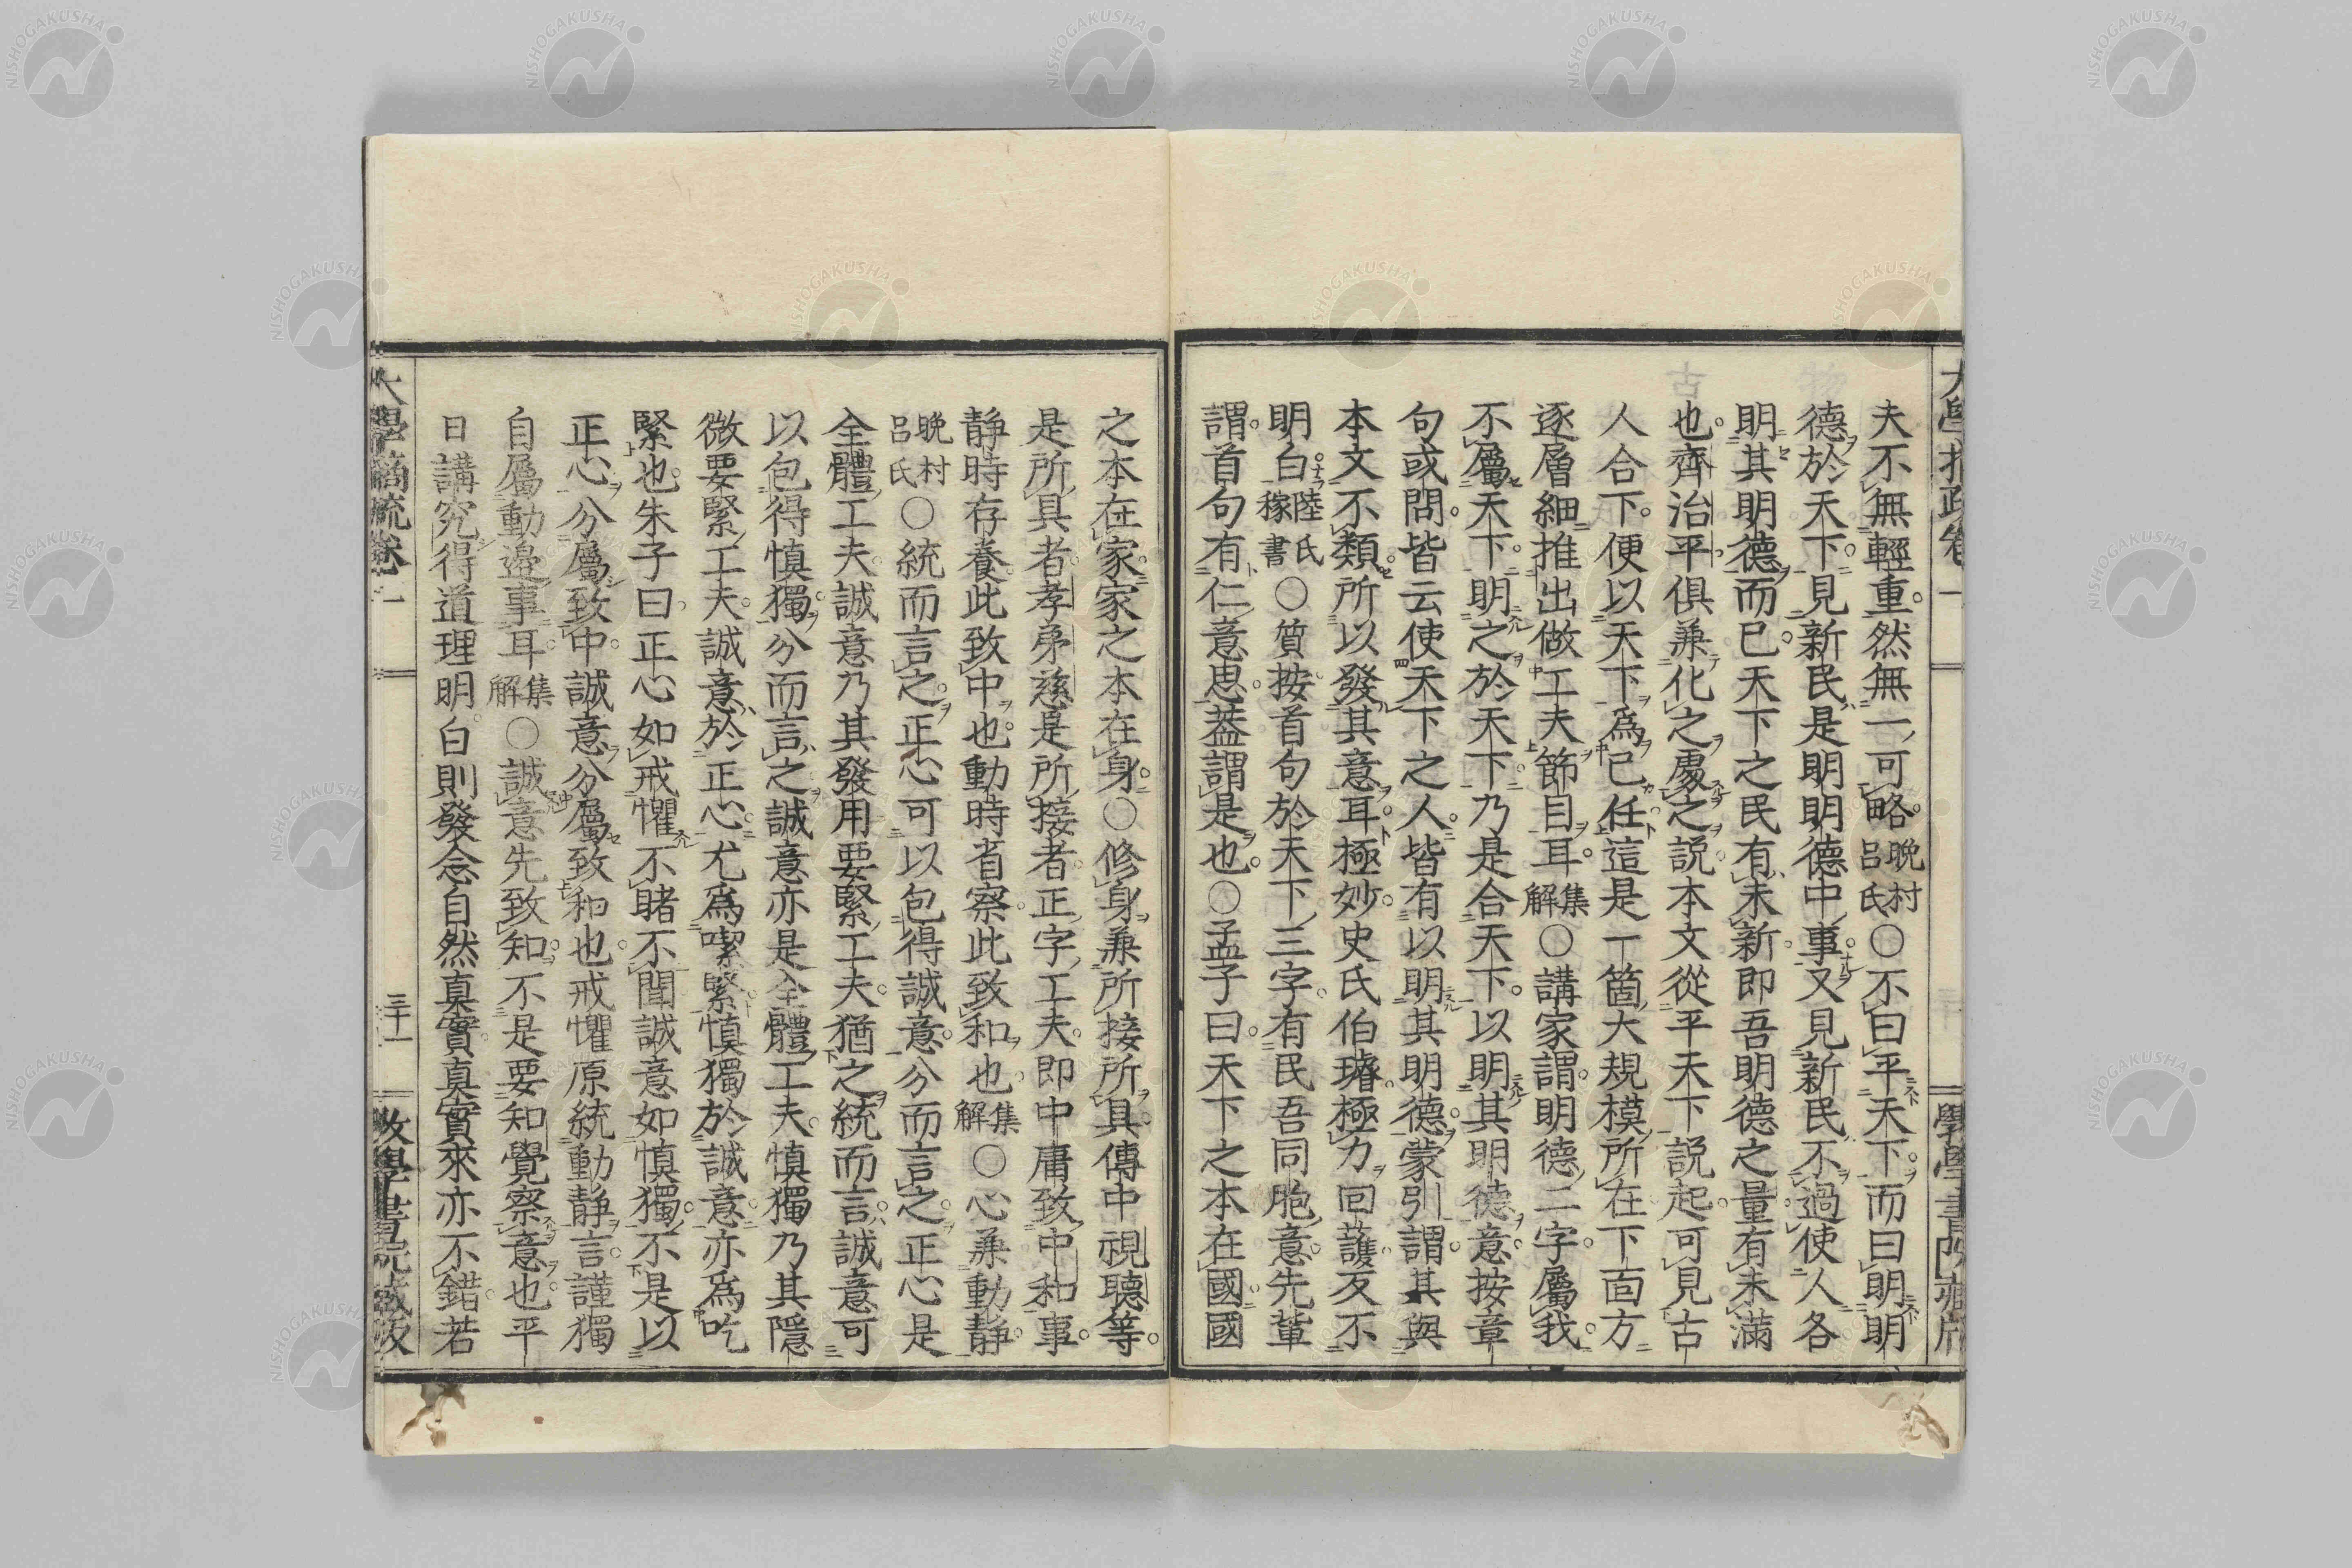 夫不無輕重然無一可略晚村呂氏○不曰平天下而曰明明
德於天下見新民是明明德中事又見新民不過使人各
明其明德而已天下之民有未新即吾明德之量有未滿
也齊治平俱兼化之處之説本文從平天下説起可見古
人合下便以天下爲己任這是一箇大規模所在下面方
逐層細推出做工夫節目耳集解○講家謂明德二字屬我
不屬天下明之於天下乃是合天下以明其明德意按章
句或問皆云使天下之人皆有以明其明德蒙引謂其與
本文不類所以發其意耳極妙史氏伯璿極力回護反不
明白陸氏稼書○質按首句於天下三字有民吾同胞意先輩
謂首句有仁意思葢謂是也○孟子曰天下之本在國國
之本在家家之本在身○修身兼所接所具傳中視聽等
是所具者孝弟慈是所接者正字工夫即中庸致中和事
静時存養此致中也動時省察此致和也集解○心兼動静
晚村呂氏○統而言之正心可以包得誠意分而言之正心是
全體工夫誠意乃其發用要緊工夫猶之統而言誠意可
以包得慎獨分而言之誠意亦是全體工夫慎獨乃其隱
微要緊工夫誠意於正心尤爲喫緊慎獨於誠意亦爲吃
緊也朱子曰正心如戒懼不睹不聞誠意如慎獨不是以
正心分屬致中誠意分屬致和也戒懼原統動静言謹獨
自屬動邊事耳集解○誠意先致知不是要知覺察意也平
日講究得道理明白則發念自然真實真實來亦不錯若
三十一
NISHOGAKUSHA